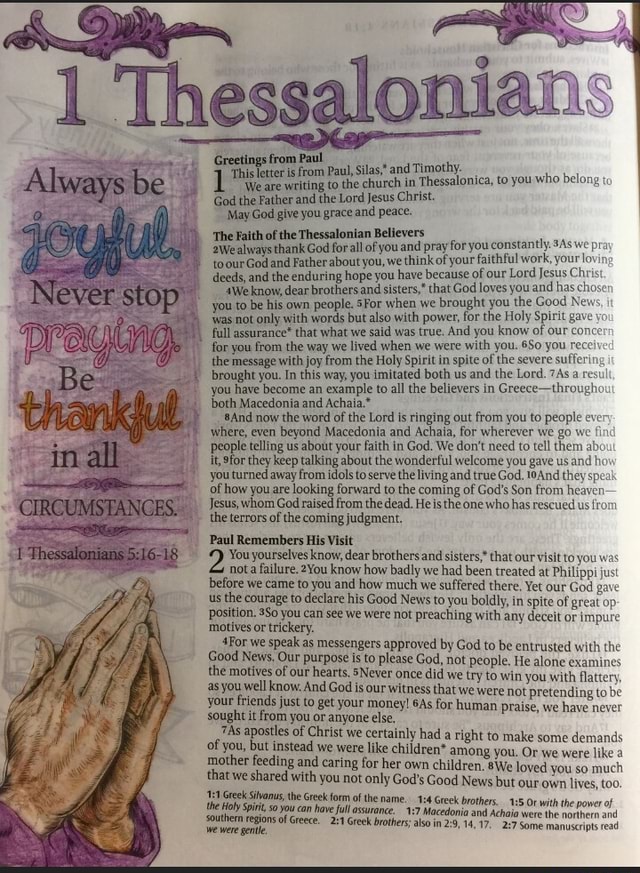 1 Thessalonians
Always be
joyful.
Never stop
praying.
Be
thankful
in all
CIRCUMSTANCES.
1 Thessalonians 5:16-18
Greetings from Paul
1 This letter is from Paul, Silas,* and Timothy.
We are writing to the church in Thessalonica, to you who belong to
God the Father and the Lord Jesus Christ.
May God give you grace and peace.
The Faith of the Thessalonian Believers
2We always thank God for all of you and pray for you constantly. 3As we pray
to our God and Father about you, we think of your faithful work, your loving
deeds, and the enduring hope you have because of our Lord Jesus Christ.
4We know, dear brothers and sisters,* that God loves you and has chosen
you to be his own people. 5For when we brought you the Good News, it
was not only with words but also with power, for the Holy Spirit gave you
full assurance* that what we said was true. And you know of our concern
for you from the way we lived when we were with you. 6So you received
the message with joy from the Holy Spirit in spite of the severe suffering it
brought you. In this way, you imitated both us and the Lord. 7As a result,
you have become an example to all the believers in Greece—throughout
both Macedonia and Achaia.*
8And now the word of the Lord is ringing out from you to people every-
where, even beyond Macedonia and Achaia, for wherever we go we find
people telling us about your faith in God. We don't need to tell them about
it, 9for they keep talking about the wonderful welcome you gave us and how
you turned away from idols to serve the living and true God. 10And they speak
of how you are looking forward to the coming of God's Son from heaven—
Jesus, whom God raised from the dead. He is the one who has rescued us from
the terrors of the coming judgment.
Paul Remembers His Visit
2 You yourselves know, dear brothers and sisters,* that our visit to you was
not a failure. 2You know how badly we had been treated at Philippi just
before we came to you and how much we suffered there. Yet our God gave
us the courage to declare his Good News to you boldly, in spite of great op-
position. 3So you can see we were not preaching with any deceit or impure
motives or trickery.
4For we speak as messengers approved by God to be entrusted with the
Good News. Our purpose is to please God, not people. He alone examines
the motives of our hearts. 5Never once did we try to win you with flattery,
as you well know. And God is our witness that we were not pretending to be
your friends just to get your money! 6As for human praise, we have never
sought it from you or anyone else.
7As apostles of Christ we certainly had a right to make some demands
of you, but instead we were like children* among you. Or we were like a
mother feeding and caring for her own children. 8We loved you so much
that we shared with you not only God's Good News but our own lives, too.
1:1 Greek Silvanus, the Greek form of the name. 1:4 Greek brothers. 1:5 Or with the power of
the Holy Spirit, so you can have full assurance. 1:7 Macedonia and Achaia were the northern and
southern regions of Greece. 2:1 Greek brothers; also in 2:9, 14, 17. 2:7 Some manuscripts read
we were gentle.